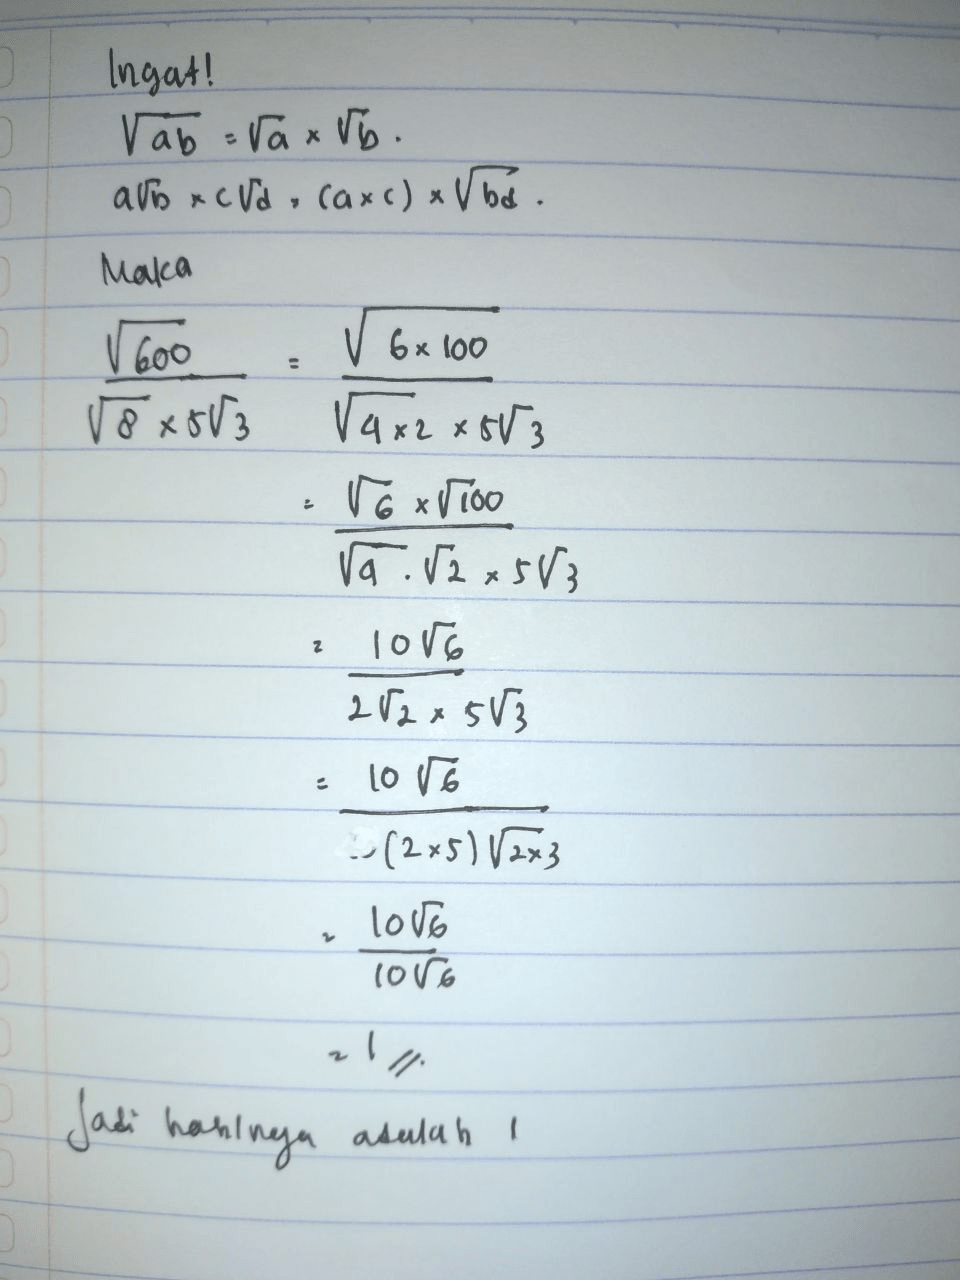 Ingat!
√ab = √a × √b.
a√b × c√d = (a×c) × √bd.
Maka
√600 / √8 × 5√3 = √6×100 / √4×2 × 5√3
= √6 × √100 / √4 . √2 × 5√3
= 10√6 / 2√2 × 5√3
= 10√6 / (2×5)√2×3
= 10√6 / 10√6
= 1 //.
Jadi hasilnya adalah 1